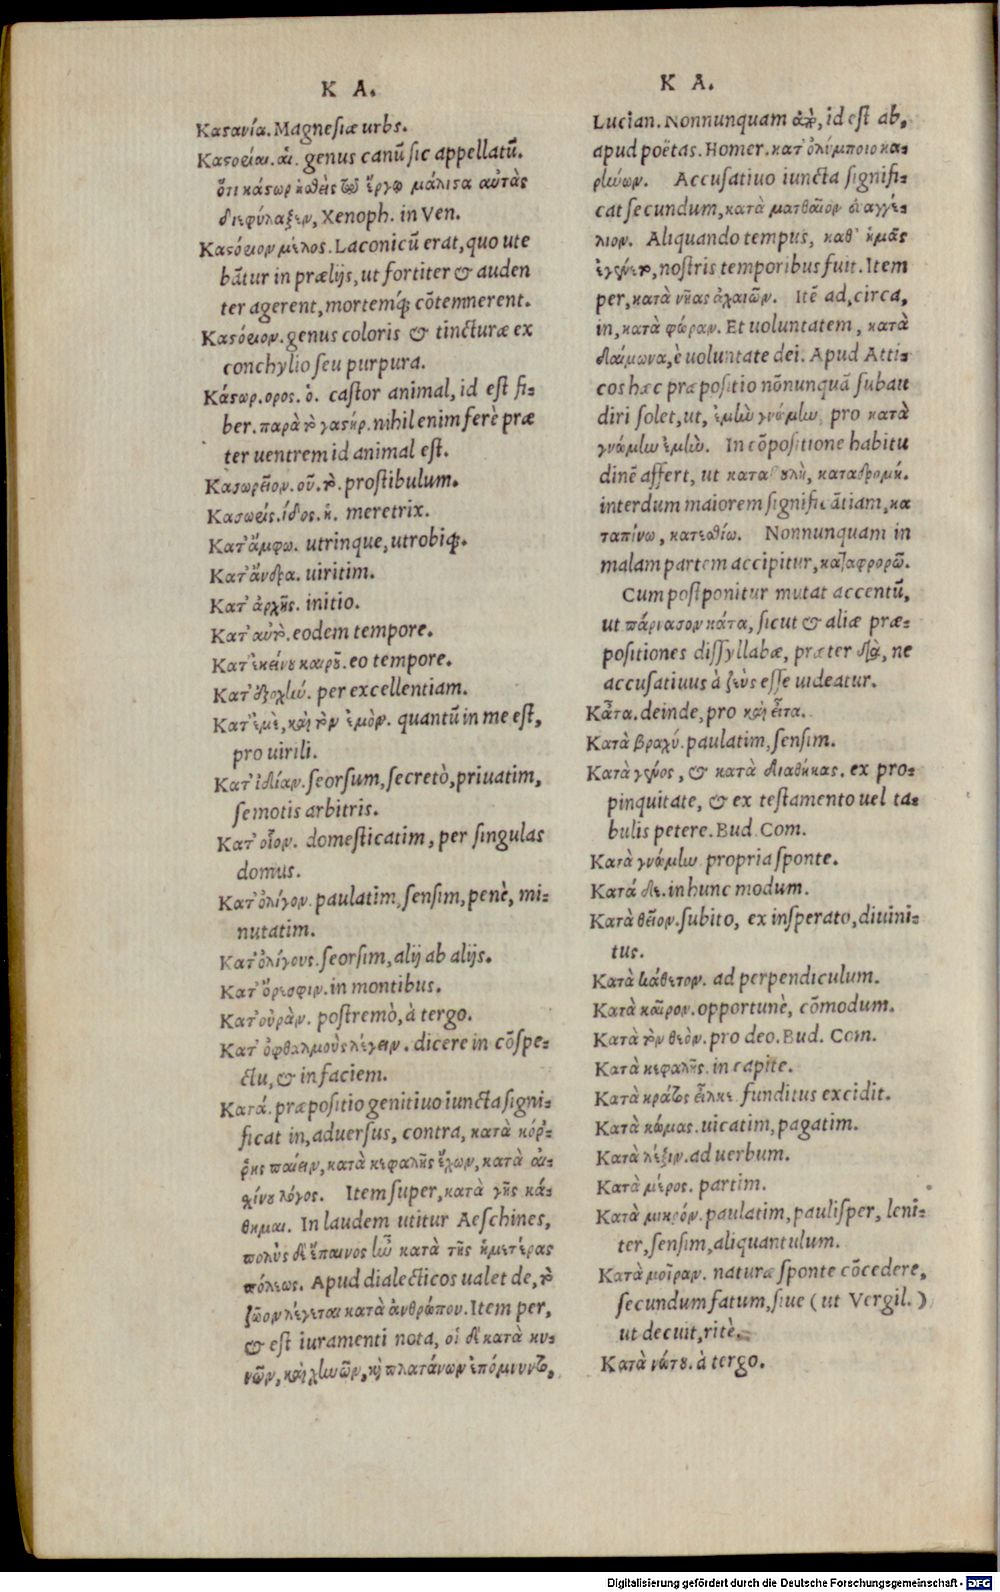 K A.
Καϛανία. Magnesiæ urbs.
Καϛοείαι. αἱ. genus canũ sic appellatũ.
ὅτι κάϛωρ ἡϑεὶς τῷ ἔργῳ μάλιϛα αὐτὰς
διεφύλαξεν, Xenoph. in Ven.
Καϛόειον μέλος. Laconicũ erat, quo ute
bãtur in prælijs, ut fortiter & auden
ter agerent, mortemq́; cõtemnerent.
Καϛόειον. genus coloris & tincturæ ex
conchylio seu purpura.
Κάϛωρ. ορος. ὁ. castor animal, id est fi-
ber. παρὰ τὸ γαϛήρ. nihil enim ferè præ
ter uentrem id animal est.
Κασωρεῖον. οῦ. τὸ. prostibulum.
Κασωείς. ίδος. ἡ. meretrix.
Κατ' ἄμφω. utrinque, utrobiq;.
Κατ' ἄνδρα. uiritim.
Κατ' ἀρχῆς. initio.
Κατ' αὐτὸ. eodem tempore.
Κατ' ἐκείνου καιροῦ. eo tempore.
Κατ' ἐξοχήν. per excellentiam.
Κατ' ἐμὲ, καὶ τὸν ἐμὸν. quantũ in me est,
pro uirili.
Κατ' ἰδίαν. seorsum, secretò, priuatim,
semotis arbitris.
Κατ' οἶον. domesticatim, per singulas
domus.
Κατ' ὀλίγον. paulatim, sensim, penè, mi-
nutatim.
Κατ' ὀλίγους. seorsim, alij ab alijs.
Κατ' ὄρεσφιν. in montibus.
Κατ' οὐρὰν. postremò, à tergo.
Κατ' ὀφθαλμοὺς λέγειν. dicere in cõspe-
ctu, & in faciem.
Κατά. præpositio genitiuo iuncta signi-
ficat in, aduersus, contra, κατὰ κόρ-
ῥης παίειν, κατὰ κεφαλῆς ἔχων, κατὰ αἰ-
χίνου λόγος. Item super, κατὰ γῆς κά-
θημαι. In laudem utitur Aeschines,
πολὺς δ' ἔπαινος ἦν κατὰ τῆς ἡμετέρας
πόλεως. Apud dialecticos ualet de, τὸ
ζῶον λέγεται κατὰ ἀνθρώπου. Item per,
& est iuramenti nota, οἱ δὲ κατὰ κυ-
νῶν, καὶ χηνῶν, καὶ πλατάνων ἐπόμνυντο,
K A.
Lucian. Nonnunquam ἀπὸ, id est ab,
apud poëtas. Homer. κατ' ὀλύμποιο κα-
ρήνων. Accusatiuo iuncta signifi-
cat secundum, κατὰ ματθαῖον εὐαγγέ-
λιον. Aliquando tempus, καθ' ἡμᾶς
ἐγένετο, nostris temporibus fuit. Item
per, κατὰ νῆας ἀχαιῶν. Itẽ ad, circa,
in, κατὰ φώραν. Et uoluntatem, κατὰ
δαίμονα, è uoluntate dei. Apud Atti-
cos hæc præpositio nõnunquã subau
diri solet, ut, ἐμὴν γνώμην, pro κατὰ
γνώμην ἐμὴν. In cõpositione habitu
dinẽ affert, ut καταβουλὴ, καταδρομή.
interdum maiorem significãtiam, κα
ταπίνω, κατεσθίω. Nonnunquam in
malam partem accipitur, καταφρορῶ.
Cum postponitur mutat accentũ,
ut πάριασον κάτα, sicut & aliæ præ-
positiones dissyllabæ, præter διὰ, ne
accusatiuus à ζεὺς esse uideatur.
Κᾆτα. deinde, pro καὶ εἶτα.
Κατὰ βραχύ. paulatim, sensim.
Κατὰ γένος, & κατὰ διαθήκας. ex pro-
pinquitate, & ex testamento uel ta-
bulis petere. Bud. Com.
Κατὰ γνώμην propria sponte.
Κατά δε. in hunc modum.
Κατὰ θεῖον. subito, ex insperato, diuini-
tus.
Κατὰ κάθετον. ad perpendiculum.
Κατὰ καῖρον. opportunè, cõmodum.
Κατὰ τὸν θεὸν. pro deo. Bud. Com.
Κατὰ κεφαλῆς. in capite.
Κατὰ κράτος εἷλκε. funditus excidit.
Κατὰ κώμας. uicatim, pagatim.
Κατὰ λέξιν. ad uerbum.
Κατὰ μέρος. partim.
Κατὰ μικρόν. paulatim, paulisper, leni-
ter, sensim, aliquantulum.
Κατὰ μοῖραν. naturæ sponte cõcedere,
secundum fatum, siue (ut Vergil.)
ut decuit, ritè.
Κατὰ νώτου. à tergo.
Digitalisierung gefördert durch die Deutsche Forschungsgemeinschaft - DFG